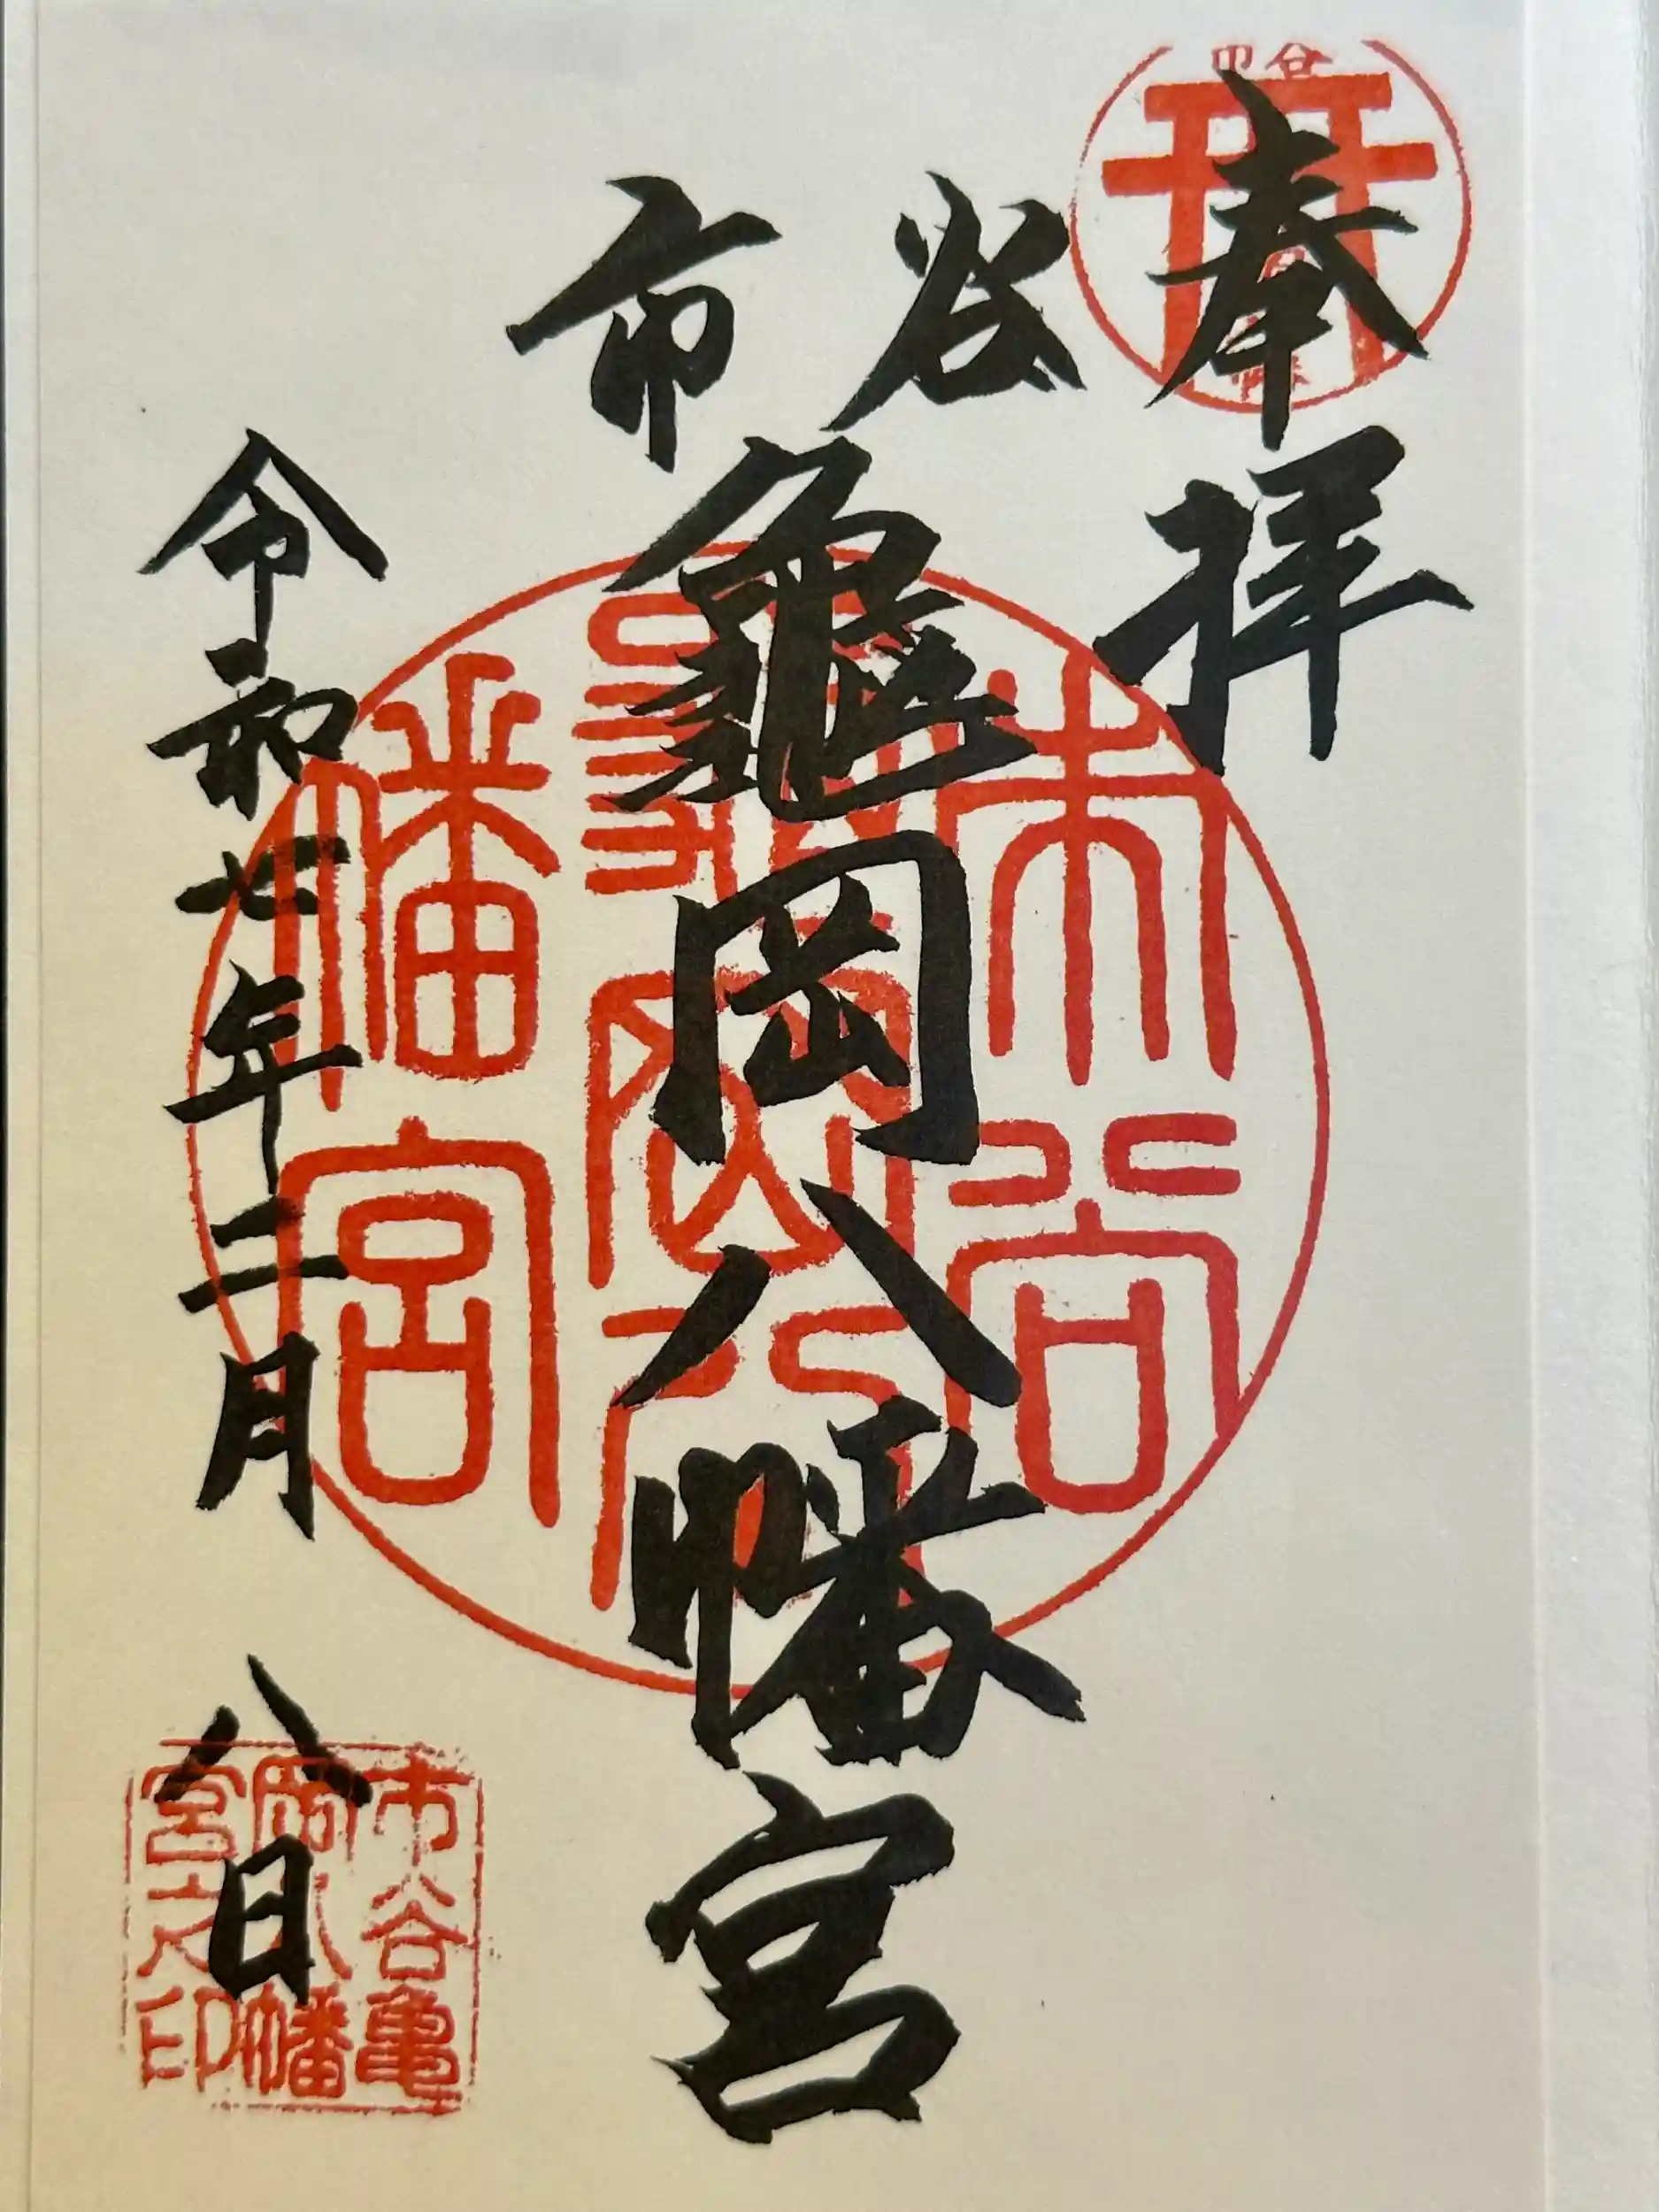 奉拝
市谷
龜岡八幡宮
令和七年二月八日
市谷
市谷
龜岡八
幡宮
市谷亀
岡八幡
宮之印